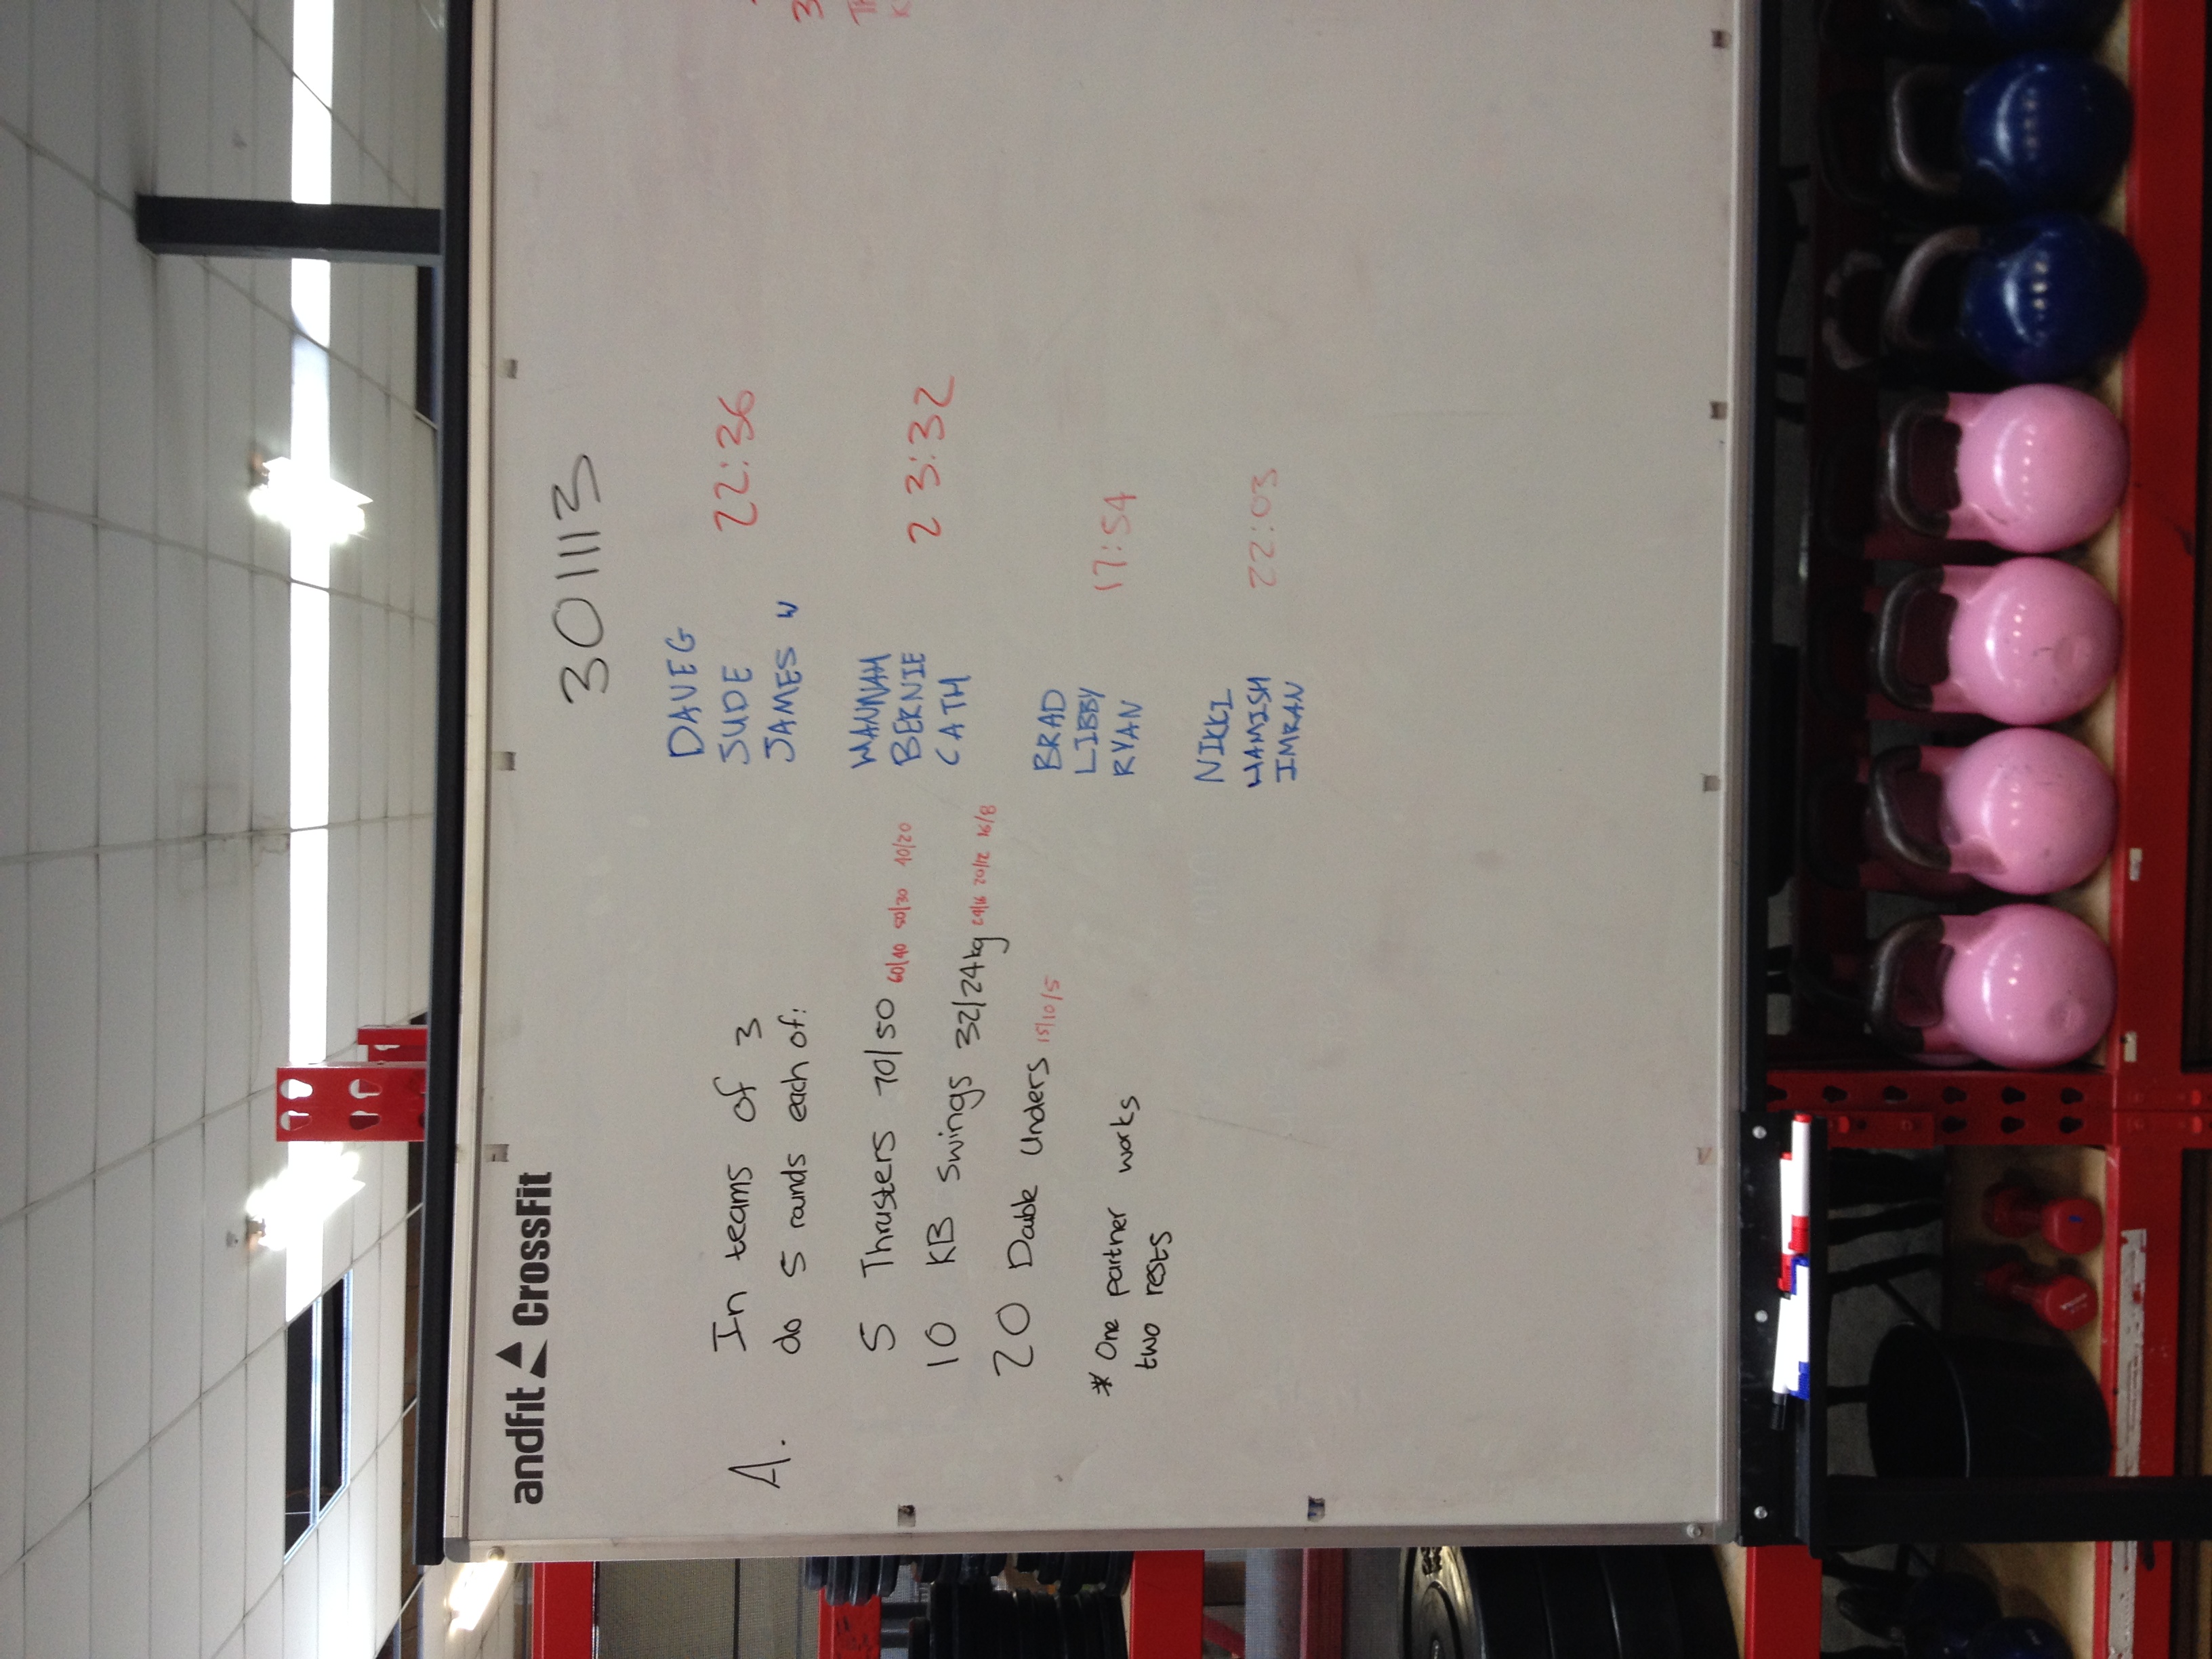 andfit CrossFit
301113
A. In teams of 3
do 5 rounds each of:
5 Thrusters 70/50 60/40 50/30 40/20
10 KB Swings 32/24kg 24/16 20/12 16/8
20 Double Unders 15/10/5
* One partner works
two rests
DAVE G
JUDE
JAMES W
22:36
HANNAH
BERNIE
CATH
23:32
BRAD
LIBBY
RYAN
17:54
NIKKI
HAMISH
IMRAN
22:03